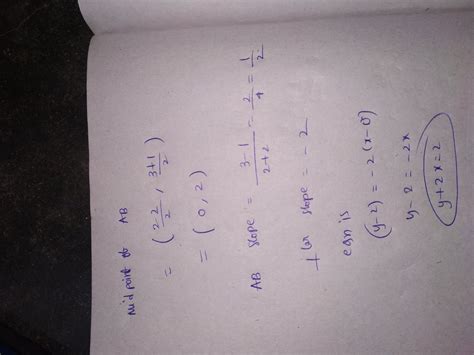 Mid point of AB
= (2-2/2, 3+1/2)
= (0, 2)
AB slope = 3-1/2+2 = 2/4 = 1/2
⊥lar slope = -2
eqn is
(y-2) = -2(x-0)
y-2 = -2x
y+2x=2